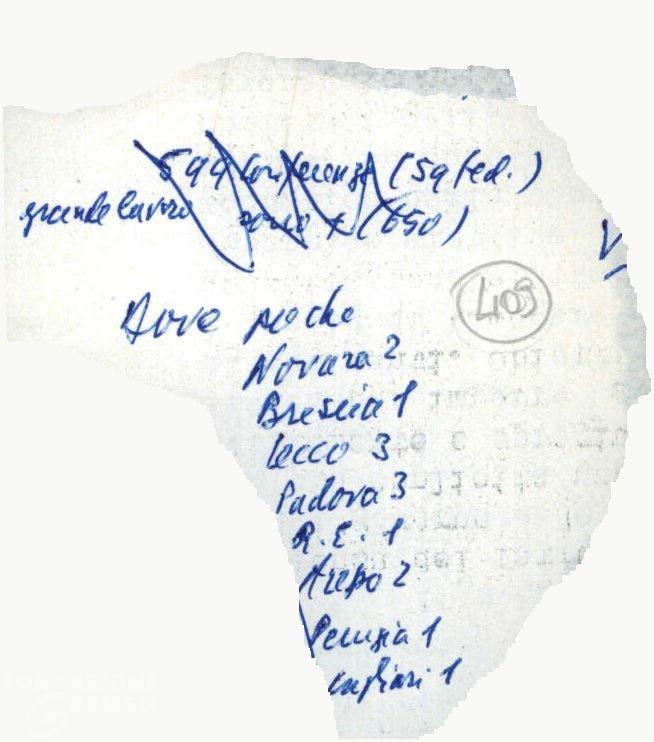 599 Conferenze (59 fed.)
grande lavoro (650)
409
Dove poche
Novara 2
Brescia 1
Lecco 3
Padova 3
R.E. 1
Arezzo 2
Perugia 1
Cagliari 1
FONDAZIONE
GRAMSCI